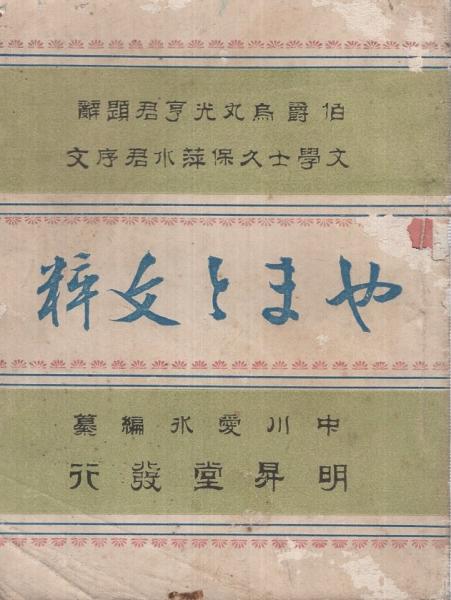 伯爵烏丸光亨君題辭
文學士久保萍水君序文
やまと文粹
中川愛氷編纂
明昇堂發行